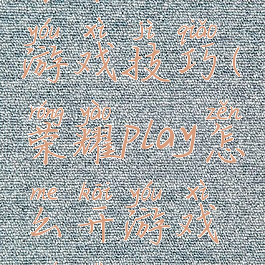 yóu xì jì qiǎo
游戏技巧(
róng yào zěn
荣耀play怎
me kāi yóu xì
么开游戏